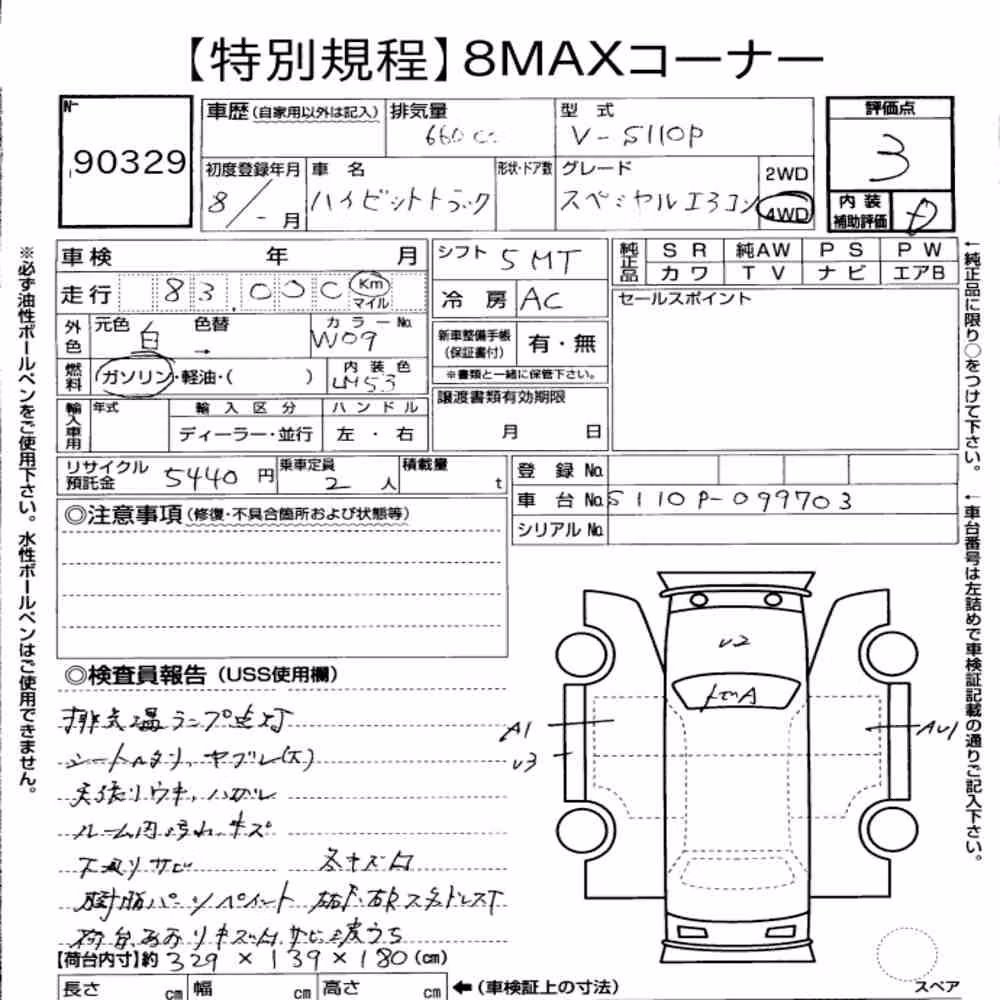 【特別規程】8MAXコーナー
No. 90329
車歴(自家用以外は記入) 排気量 660cc 型式 V-S110P 評価点 3
初度登録年月 8/- 月 車名 ハイゼットトラック 形状・ドア数 グレード スペシャルエアコン 2WD 4WD 内装補助評価 D
車検 年 月 シフト 5MT 純正品 SR 純AW PS PW
走行 83,000 Km マイル 冷房 AC カワ TV ナビ エアB
セールスポイント
外色 元色 白 色替 → カラーNo. W09 新車整備手帳(保証書付) 有・無
燃料 ガソリン・軽油・( ) 内装色 LM53 ※書類と一緒に保管下さい。
輸入車用 年式 輸入区分 ハンドル 譲渡書類有効期限
ディーラー・並行 左・右 月 日
リサイクル預託金 5440円 乗車定員 2人 積載量 t 登録No.
車台No. S110P-099703
シリアルNo.
◎注意事項(修復・不具合箇所および状態等)
◎検査員報告(USS使用欄)
排気温ランプ点灯
シートヘタリ、ヤブレ(大)
天張りウキ、ハガレ
ルーム内汚れ、キズ
下廻りサビ 各キズ凹
樹脂パーツペイント
荷台あおりキズ凹、サビ、波うち
【荷台内寸】約 329 × 139 × 180 (cm)
長さ cm 幅 cm 高さ cm ←(車検証上の寸法)
U2
A1
U3
AU1
スペア
※必ず油性ボールペンをご使用下さい。水性ボールペンはご使用できません。
←純正品に限り○をつけて下さい。
←車台番号は左詰めで車検証記載の通りご記入下さい。